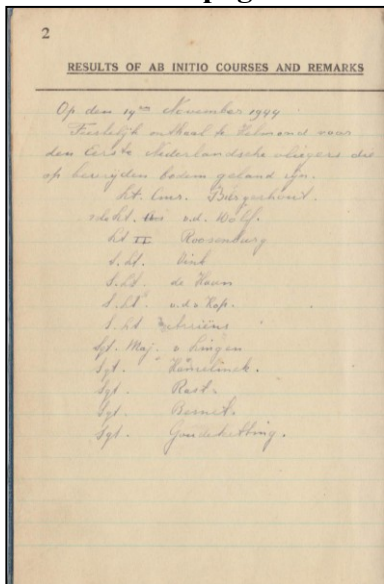 2
RESULTS OF AB INITIO COURSES AND REMARKS
Op den November 1944
Feestelijk onthaal te Helmond voor
den Eerste Nederlandsche vliegers die
op bevrijden bodem geland zijn.
Lt. Burgerhout.
v.d. Wolf.
Lt II Roosenburg
S. Lt. Vink
S. Lt. de Haan
S. Lt. v.d. Kop.
S. Lt
Sgt. Maj. v Lingen
Sgt. Hamelinck.
Sgt. Rast.
Sgt
Sgt. Goudeketting.